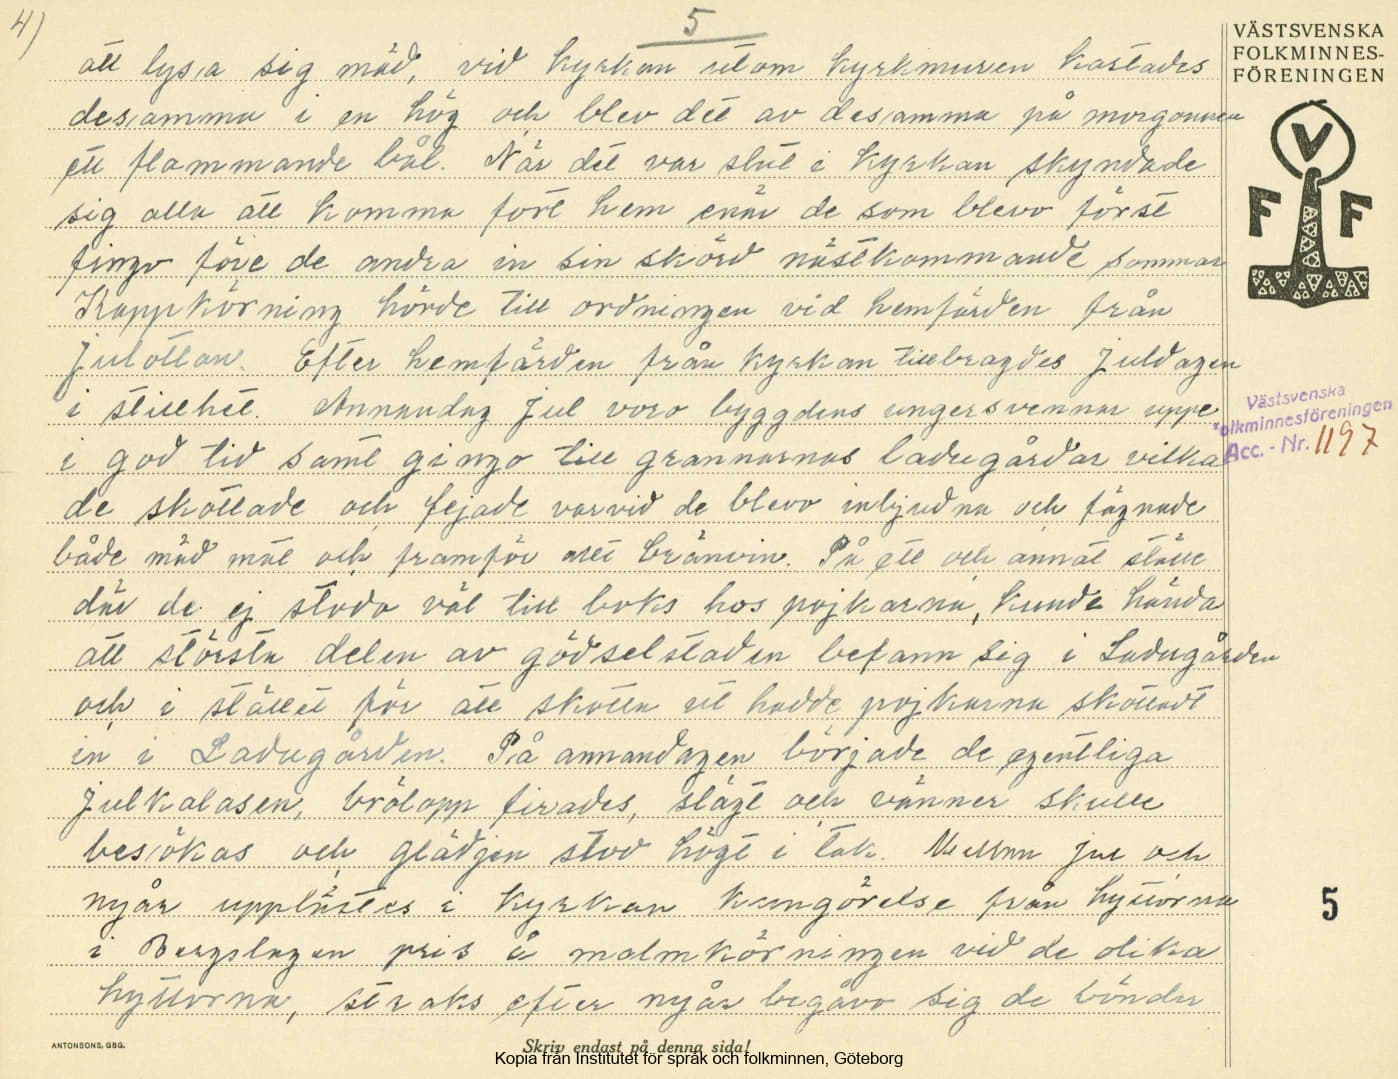 4)
5
VÄSTSVENSKA
FOLKMINNES-
FÖRENINGEN
att lysa sig mäd, vid kyrkan utom kyrkmuren kastades
desamma i en hög och blev det av desamma på morgonen
ett flammande bål. När det var slut i kyrkan skyndade
sig alla att komma fort hem enär de som blevo först
fingo före de andra in sin skörd nästkommande sommar
Kappkörning hörde till ordningen vid hemfärden från
Julottan. Efter hemfärden från kyrkan tillbragdes Juldagen
i stillhet. Annandag Jul voro byggdens ungersvennar uppe
i god tid samt gingo till grannarnas ladugårdar vilka
de skottade och fejade varvid de blevo inbjudna och fägnade
både mäd mat och framför allt bränvin. På ett och annat ställe
där de ej stodo väl till boks hos pojkarna, kunde hända
att största delen av gödselstaden befann sig i Ladugården
och i stället för att skotta ut hadde pojkarna skottadt
in i Ladugården. På annandagen började de egentliga
Julkalasen, brölopp firades, slägt och vänner skulle
besökas och glädjen stod högt i tak. Mellan jul och
nyår upplästes i kyrkan kungörelse från hyttorna
i Bergslagen pris å malmkörningen vid de olika
hyttorna, straks efter nyår begåvo sig de bönder
V
F F
Västsvenska
folkminnesföreningen
Acc. - Nr. 1197
5
ANTONSONS, GBG.
Skriv endast på denna sida!
Kopia från Institutet för språk och folkminnen, Göteborg